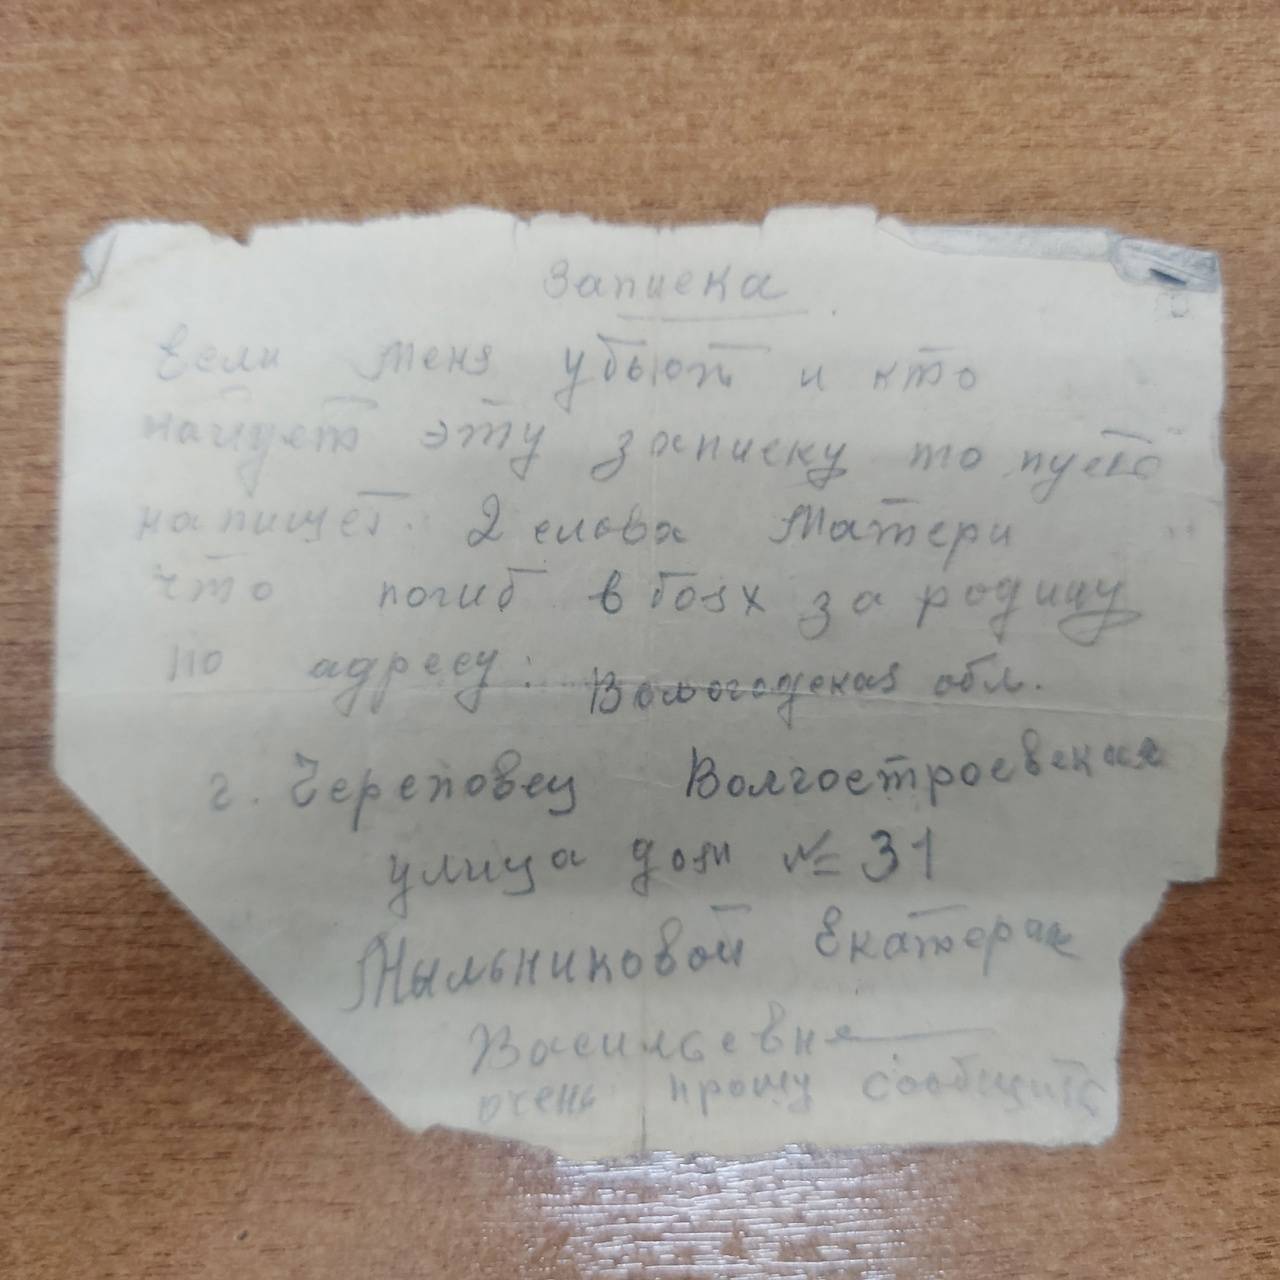 Записка
Если меня убьют и кто
найдет эту записку то пусть
напишет 2 слова Матери
что погиб в боях за родину
по адресу: Вологодская обл.
г. Череповец Волгостроевская
улица дом № 31
Мыльниковой Екатерине
Васильевне
очень прошу сообщить